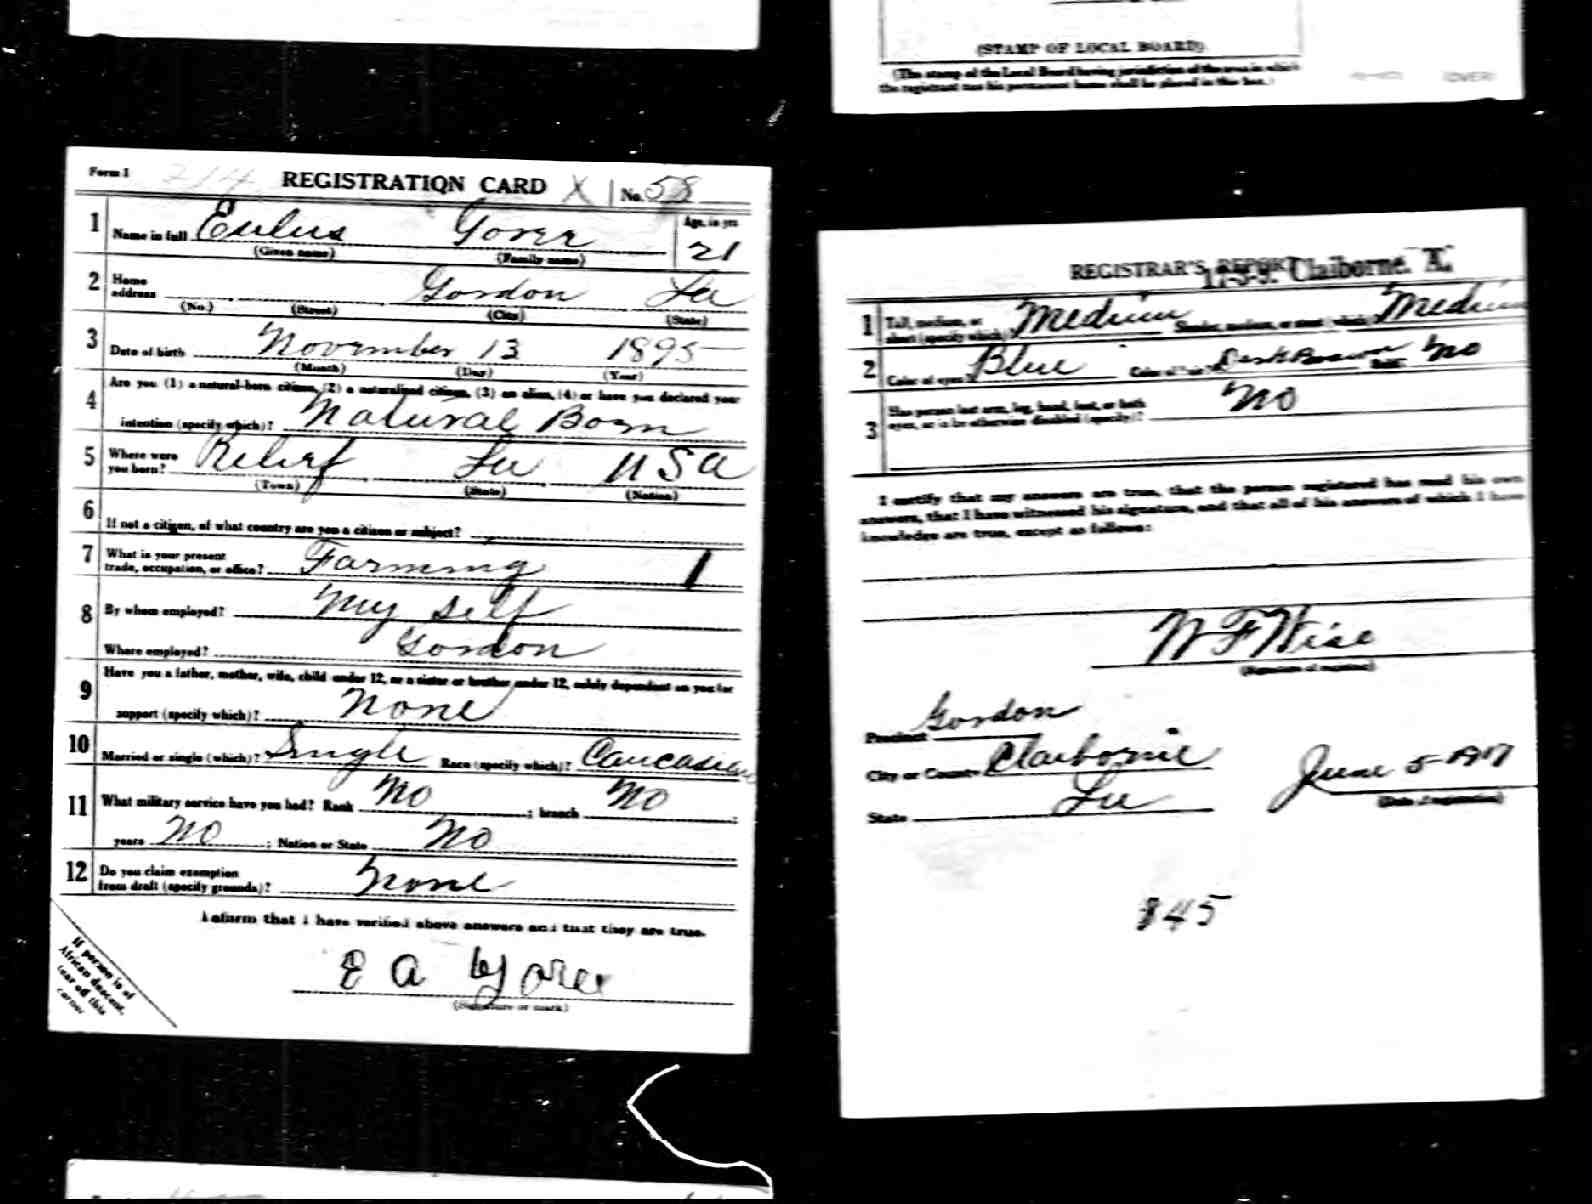 (STAMP OF LOCAL BOARD)
(The stamp of the Local Board having jurisdiction of the area in which
the registrant has his permanent home shall be placed in this box.)
(OVER)
Form 1 214 REGISTRATION CARD X No. 58
1 Name in full Eulus Gorer Age, in yrs 21
(Given name) (Family name)
2 Home address Gordon La
(No.) (Street) (City) (State)
3 Date of birth November 13 1895
(Month) (Day) (Year)
4 Are you (1) a natural-born citizen, (2) a naturalized citizen, (3) an alien, (4) or have you declared your
intention (specify which)? Natural Born
5 Where were you born? Relief La USA
(Town) (State) (Nation)
6 If not a citizen, of what country are you a citizen or subject?
7 What is your present trade, occupation, or office? Farming 1
8 By whom employed? My Self
Where employed? Gordon
9 Have you a father, mother, wife, child under 12, or a sister or brother under 12, solely dependent on you for
support (specify which)? None
10 Married or single (which)? Single Race (specify which)? Caucasian
11 What military service have you had? Rank No ; branch No ;
years No ; Nation or State No
12 Do you claim exemption from draft (specify grounds)? None
I affirm that I have verified above answers and that they are true.
E A
(Signature or mark)
If person is of
African descent,
tear off this
corner
REGISTRAR'S REPORT Claiborne.
1 Tall, medium, or short (specify which)? Medium Slender, medium, or stout (which)? Medium
2 Color of eyes? Blue Color of hair? Dark Brown Bald? No
3 Has person lost arm, leg, hand, foot, or both
eyes, or is he otherwise disabled (specify)? No
I certify that my answers are true, that the person registered has read his own
answers, that I have witnessed his signature, and that all of his answers of which I have
knowledge are true, except as follows:
W F Wise
(Signature of registrar)
Precinct Gordon
City or County Claiborne
State La
June 5-1917
(Date of registration)
845